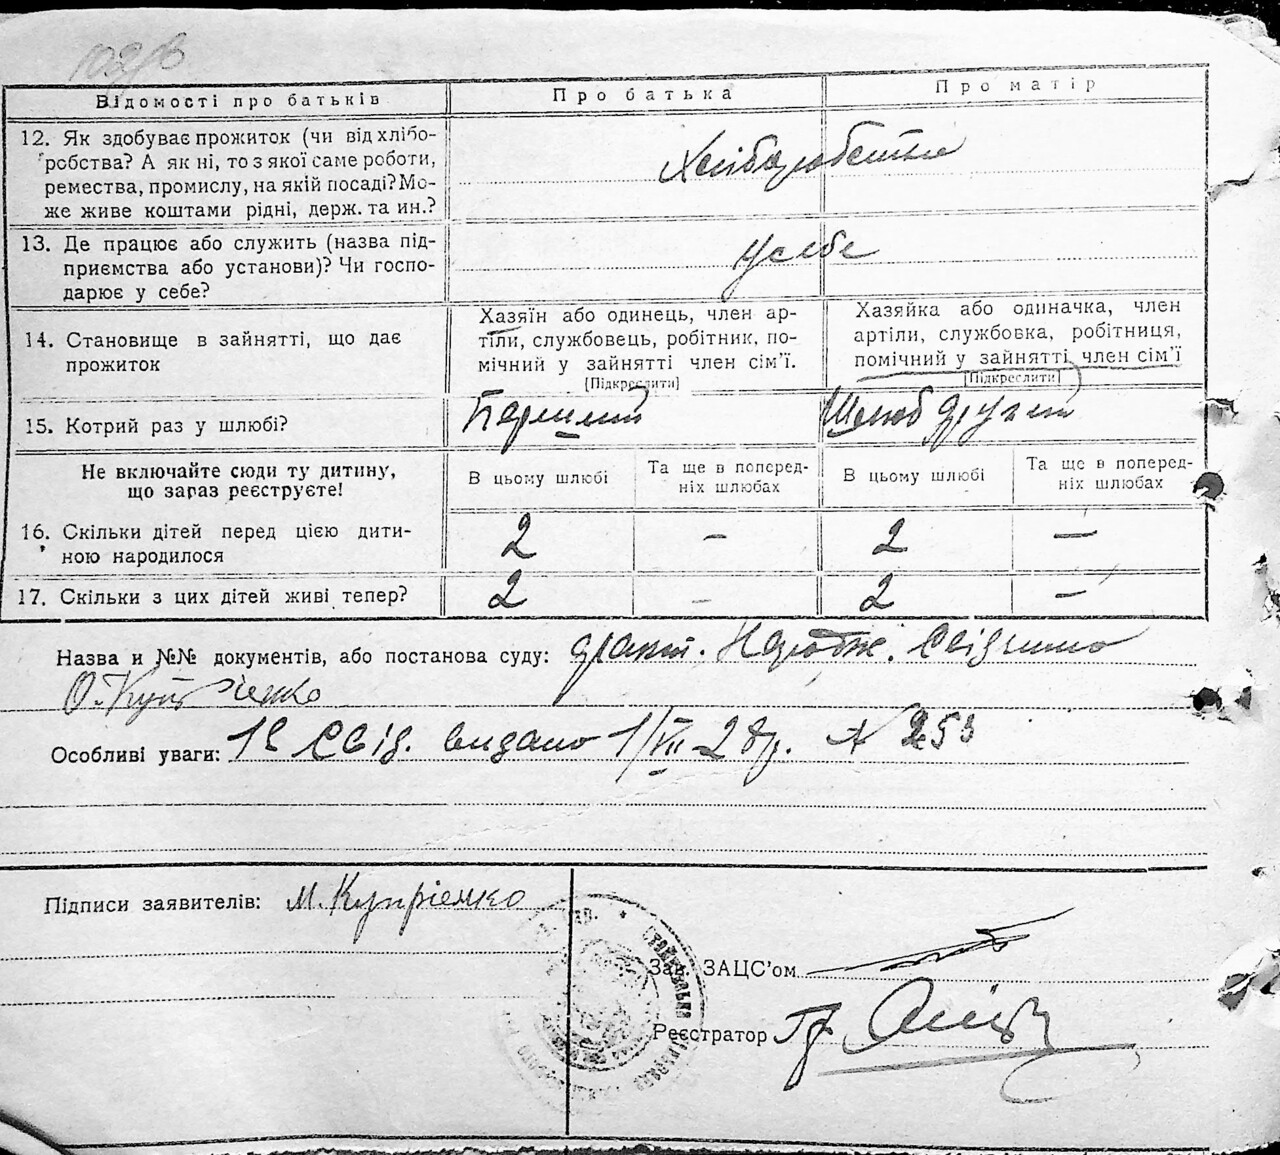 Відомості про батьків
Про батька
Про матір
12. Як здобуває прожиток (чи від хлібо-
робства? А як ні, то з якої саме роботи,
ремества, промислу, на якій посаді? Мо-
же живе коштами рідні, держ. та ин.?
13. Де працює або служить (назва під-
приємства або установи)? Чи госпо-
дарює у себе?
у себе
14. Становище в зайнятті, що дає
прожиток
Хазяїн або одинець, член ар-
тіли, службовець, робітник, по-
мічний у зайнятті член сім’ї.
[Підкреслити]
Хазяйка або одиначка, член
артіли, службовка, робітниця,
помічний у зайнятті член сім’ї
[Підкреслити]
15. Котрий раз у шлюбі?
Шлюб другий
Не включайте сюди ту дитину,
що зараз реєструєте!
В цьому шлюбі
Та ще в поперед-
ніх шлюбах
В цьому шлюбі
Та ще в поперед-
ніх шлюбах
16. Скільки дітей перед цією дити-
ною народилося
2 – 2 –
17. Скільки з цих дітей живі тепер?
2 – 2 –
Назва и №№ документів, або постанова суду:
О. Купрієнко
Особливі уваги: Свід. видано 1/VII-28р. № 253
Підписи заявителів: М. Купрієнко
Зав. ЗАЦС’ом
Реєстратор